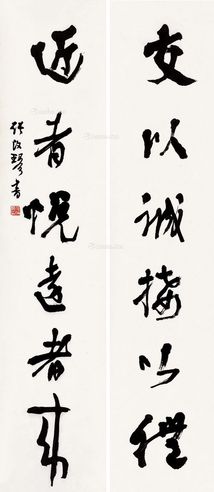 交以诚接以礼
近者悦远者来
张改琴书